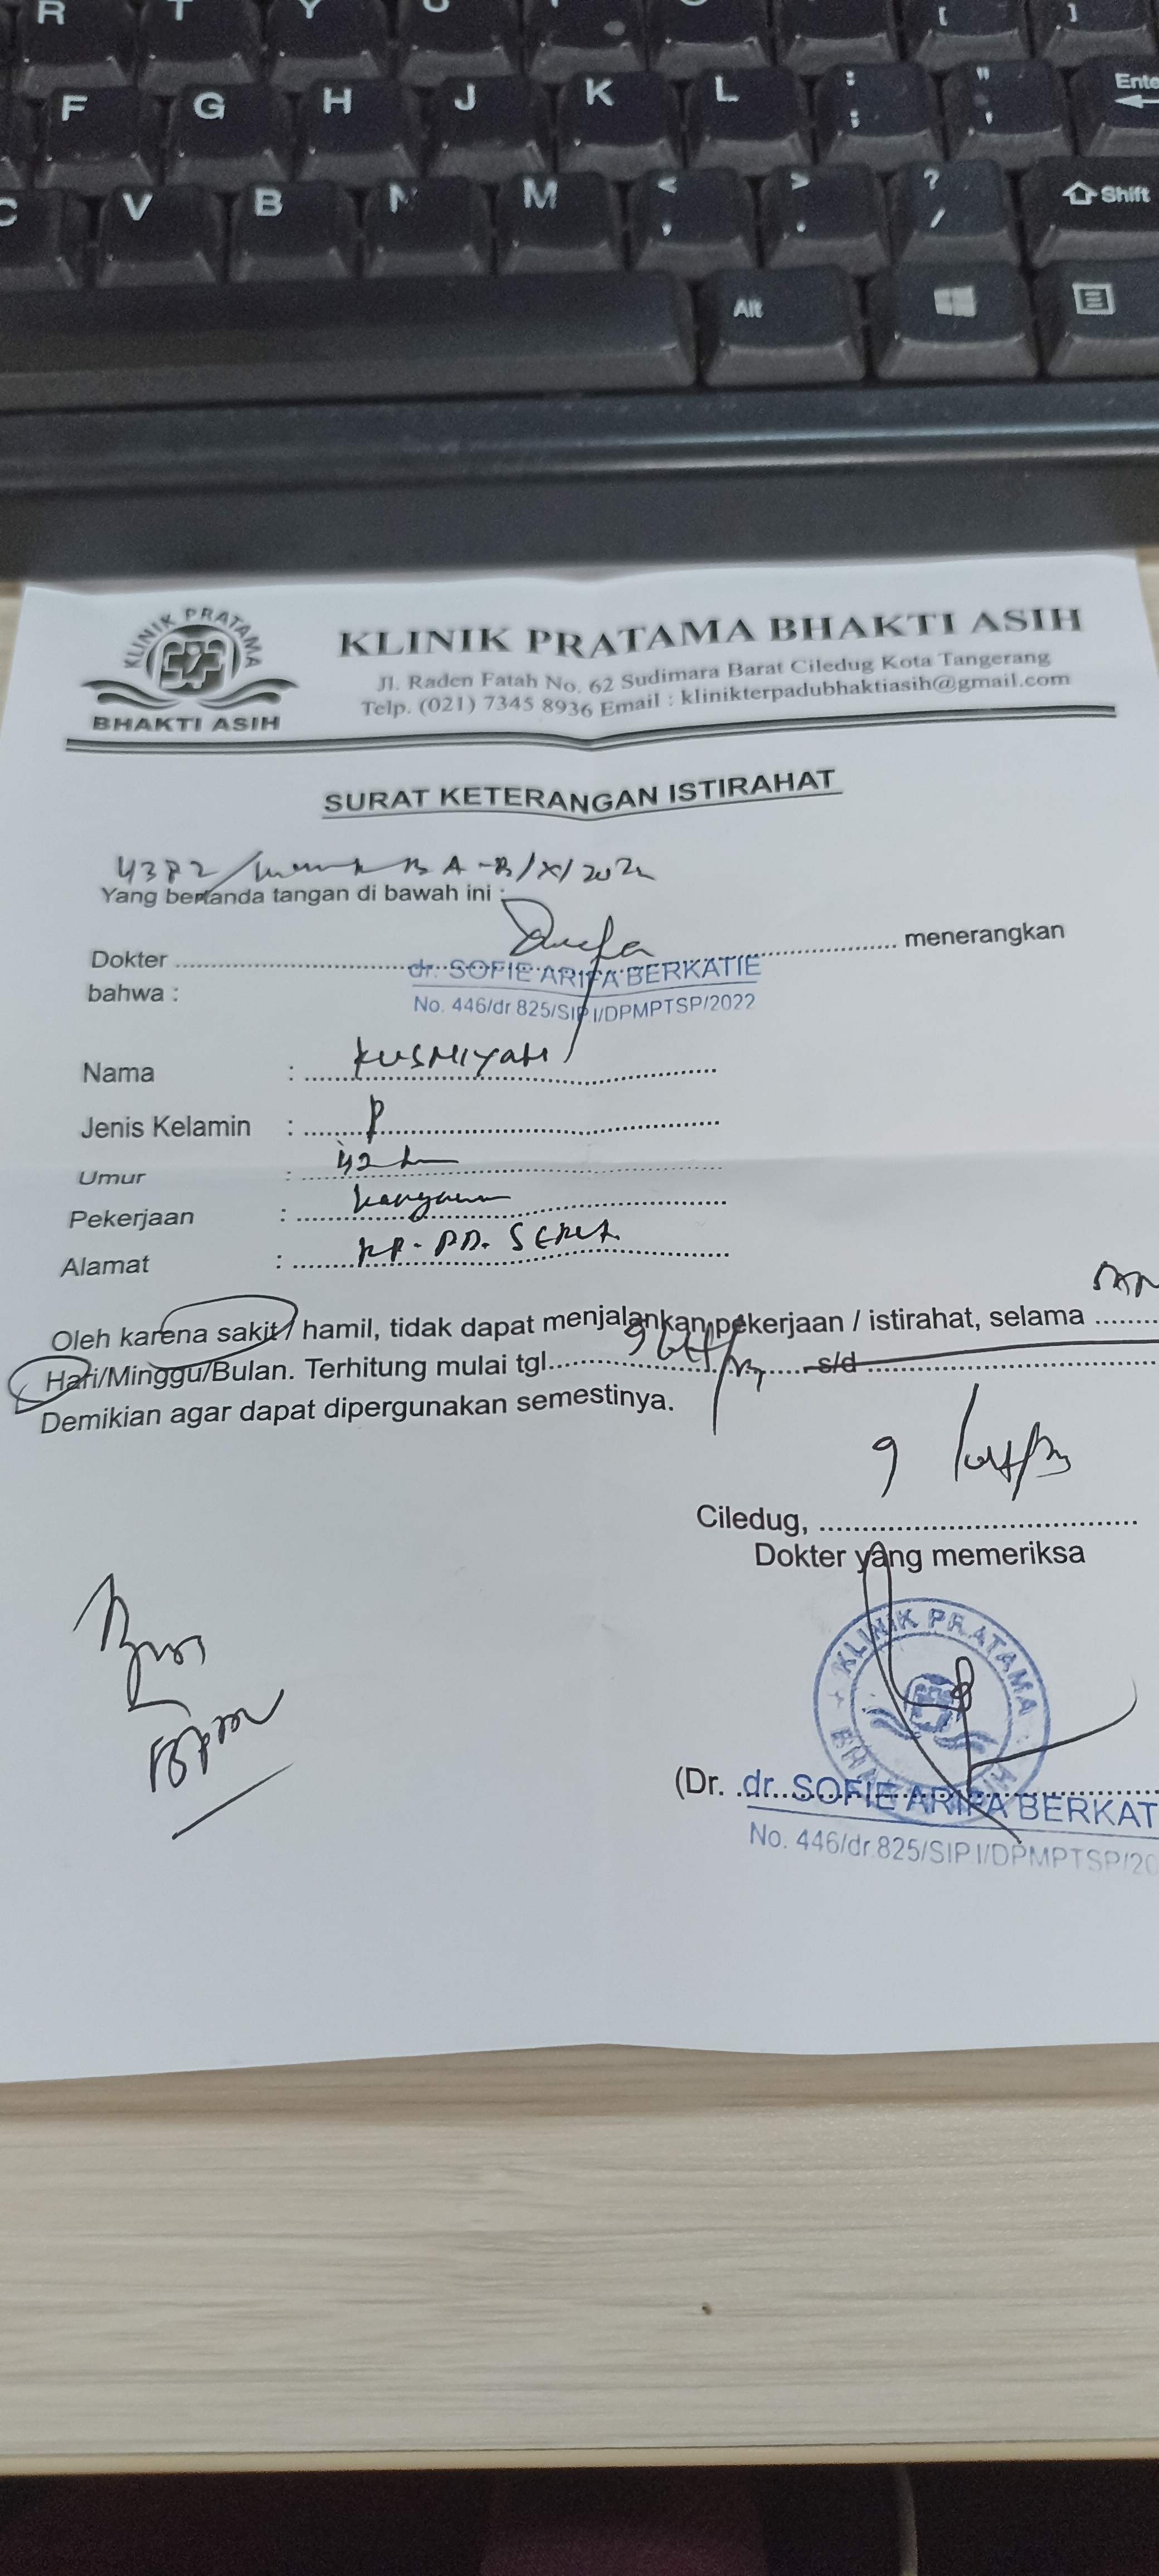 R T Y U [ ]
F G H J K L : ; " ' Ente
C V B N M < , > . ? / Shift
Alt
KLINIK PRATAMA
BHAKTI ASIH
KLINIK PRATAMA BHAKTI ASIH
Jl. Raden Fatah No. 62 Sudimara Barat Ciledug Kota Tangerang
Telp. (021) 7345 8936 Email : klinikterpadubhaktiasih@gmail.com
SURAT KETERANGAN ISTIRAHAT
Yang bertanda tangan di bawah ini :
Dokter ........ menerangkan
dr. SOFIE ARIFA BERKATIE
bahwa :
No. 446/dr.825/SIP I/DPMPTSP/2022
Nama : KUSMIYATI
Jenis Kelamin : P
Umur : 42
Pekerjaan :
Alamat : KP. PD.
Oleh karena sakit / hamil, tidak dapat menjalankan pekerjaan / istirahat, selama ........
Hari/Minggu/Bulan. Terhitung mulai tgl........ 9 s/d ........
Demikian agar dapat dipergunakan semestinya.
9
Ciledug, ........
Dokter yang memeriksa
KLINIK PRATAMA
(Dr. dr. SOFIE ARIFA BERKAT
No. 446/dr.825/SIP I/DPMPTSP/20